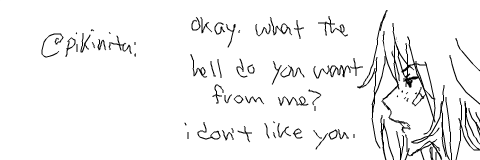 @pikinita:
okay. what the
hell do you want
from me?
i don't like you.